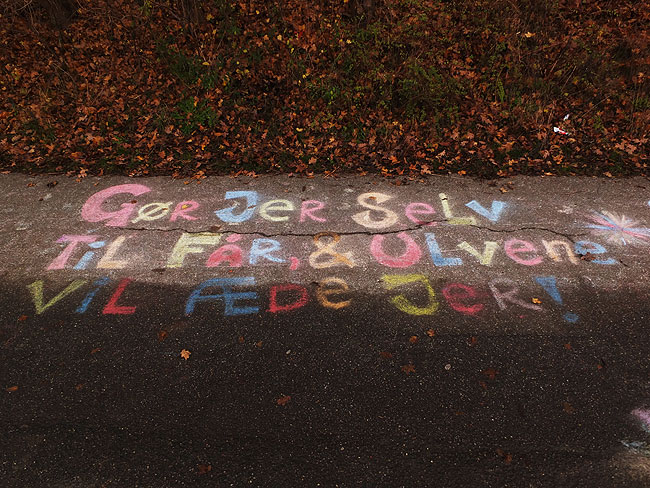 Gør Jer Selv
Til Får, & Ulvene
Vil Æde Jer!